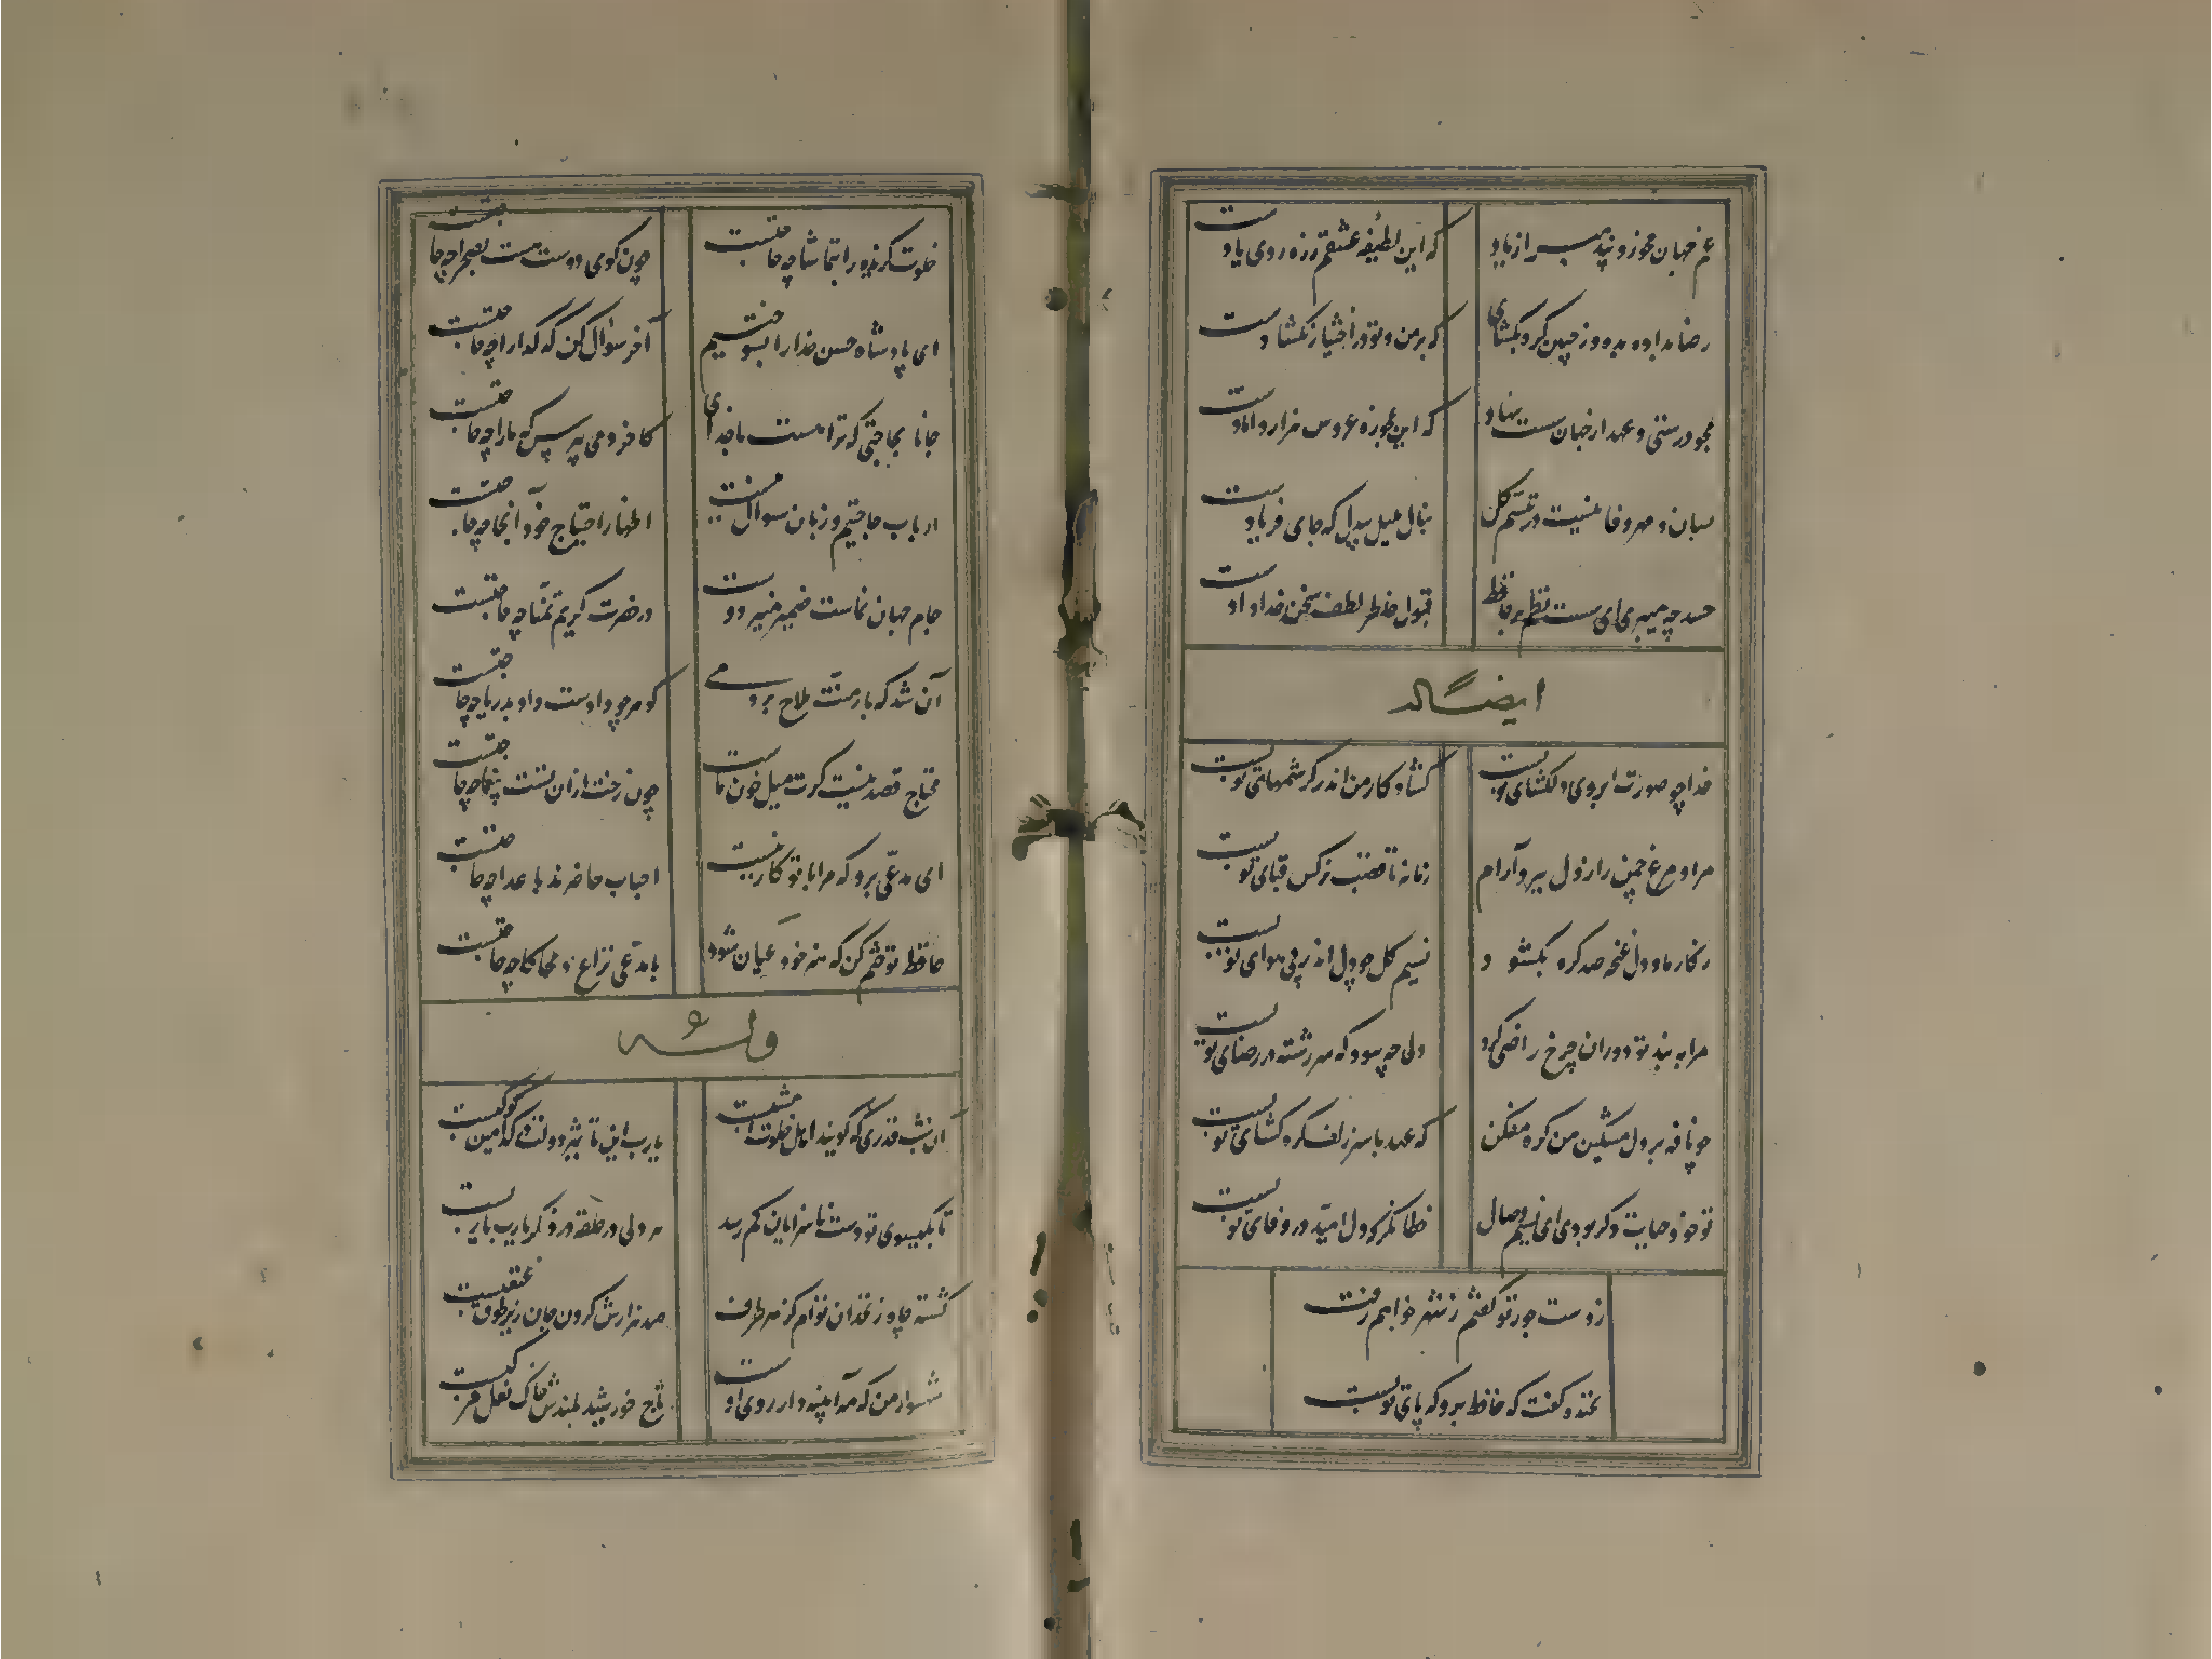 غم جهان مخور و پند من مبر از یاد
که این لطیفه عشقم ز ره روی یادست
رضا بداده بده وز جبین گره بگشای
که بر من و تو در اختیار نگشادست
مجو درستی عهد از جهان سست نهاد
که این عجوزه عروس هزار دامادست
نشان مهر و وفا نیست در تبسم گل
بنال بلبل بیدل که جای فریادست
حسد چه میبری ای سست نظم بر حافظ
قبول خاطر و لطف سخن خدادادست
ایضاً له
خدا چو صورت ابروی دلگشای تو بست
گشاد کار من اندر کرشمهای تو بست
مرا و مرغ چمن را ز دل ببرد آرام
زمانه تا قصب نرگس قبای تو بست
ز کار ما و دل غنچه صد گره بگشود
نسیم گل چو دل اندر پی هوای تو بست
مرا به بند تو دوران چرخ راضی کرد
ولی چه سود که سر رشته در رضای تو بست
چو نافه بر دل مسکین من گره مفکن
که عهد با سر زلف گره گشای تو بست
تو خود حیات دگر بودی ای نسیم وصال
خطا نگر که دل امید در وفای تو بست
ز دست جور تو گفتم ز شهر خواهم رفت
بخنده گفت که حافظ برو که پای تو بست
خلوت گزیده را بتماشا چه حاجتست
چون کوی دوست هست بصحرا چه حاجتست
ای پادشاه حسن خدا را بسوختیم
آخر سؤال کن که گدا را چه حاجتست
جانا بحاجتی که ترا هست با خدای
کاخر دمی بپرس که ما را چه حاجتست
ارباب حاجتیم و زبان سوال نیست
اظهار احتیاج خود آنجا چه حاجتست
جام جهان نماست ضمیر منیر دوست
در حضرت کریم تمنا چه حاجتست
آن شد که بار منت ملاح بردمی
گوهر چو داد دست و او بدریا چه حاجتست
محتاج قصه نیست گرت میل خون ماست
چون رخت از ان تست یغما چه حاجتست
ای مدعی برو که مرا با تو کار نیست
احباب حاضرند باعدا چه حاجتست
حافظ تو ختم کن که هنر خود عیان شود
با مدعی نزاع و محاکا چه حاجتست
وله
آن شب قدری که گویند اهل خلوت امشبست
یارب این تاثیر دولت از کدامین کوکبست
تا بگیسوی تو دست ناسزایان کم رسد
هر دلی در حلقه در ذکر یارب یاربست
کشته چاه زنخدان توام کز هر طرف
صد هزارش گردن جان زیر طوق غبغبست
شهسوار من که مه آیینه دار روی اوست
تاج خورشید بلندش خاک نعل مرکبست